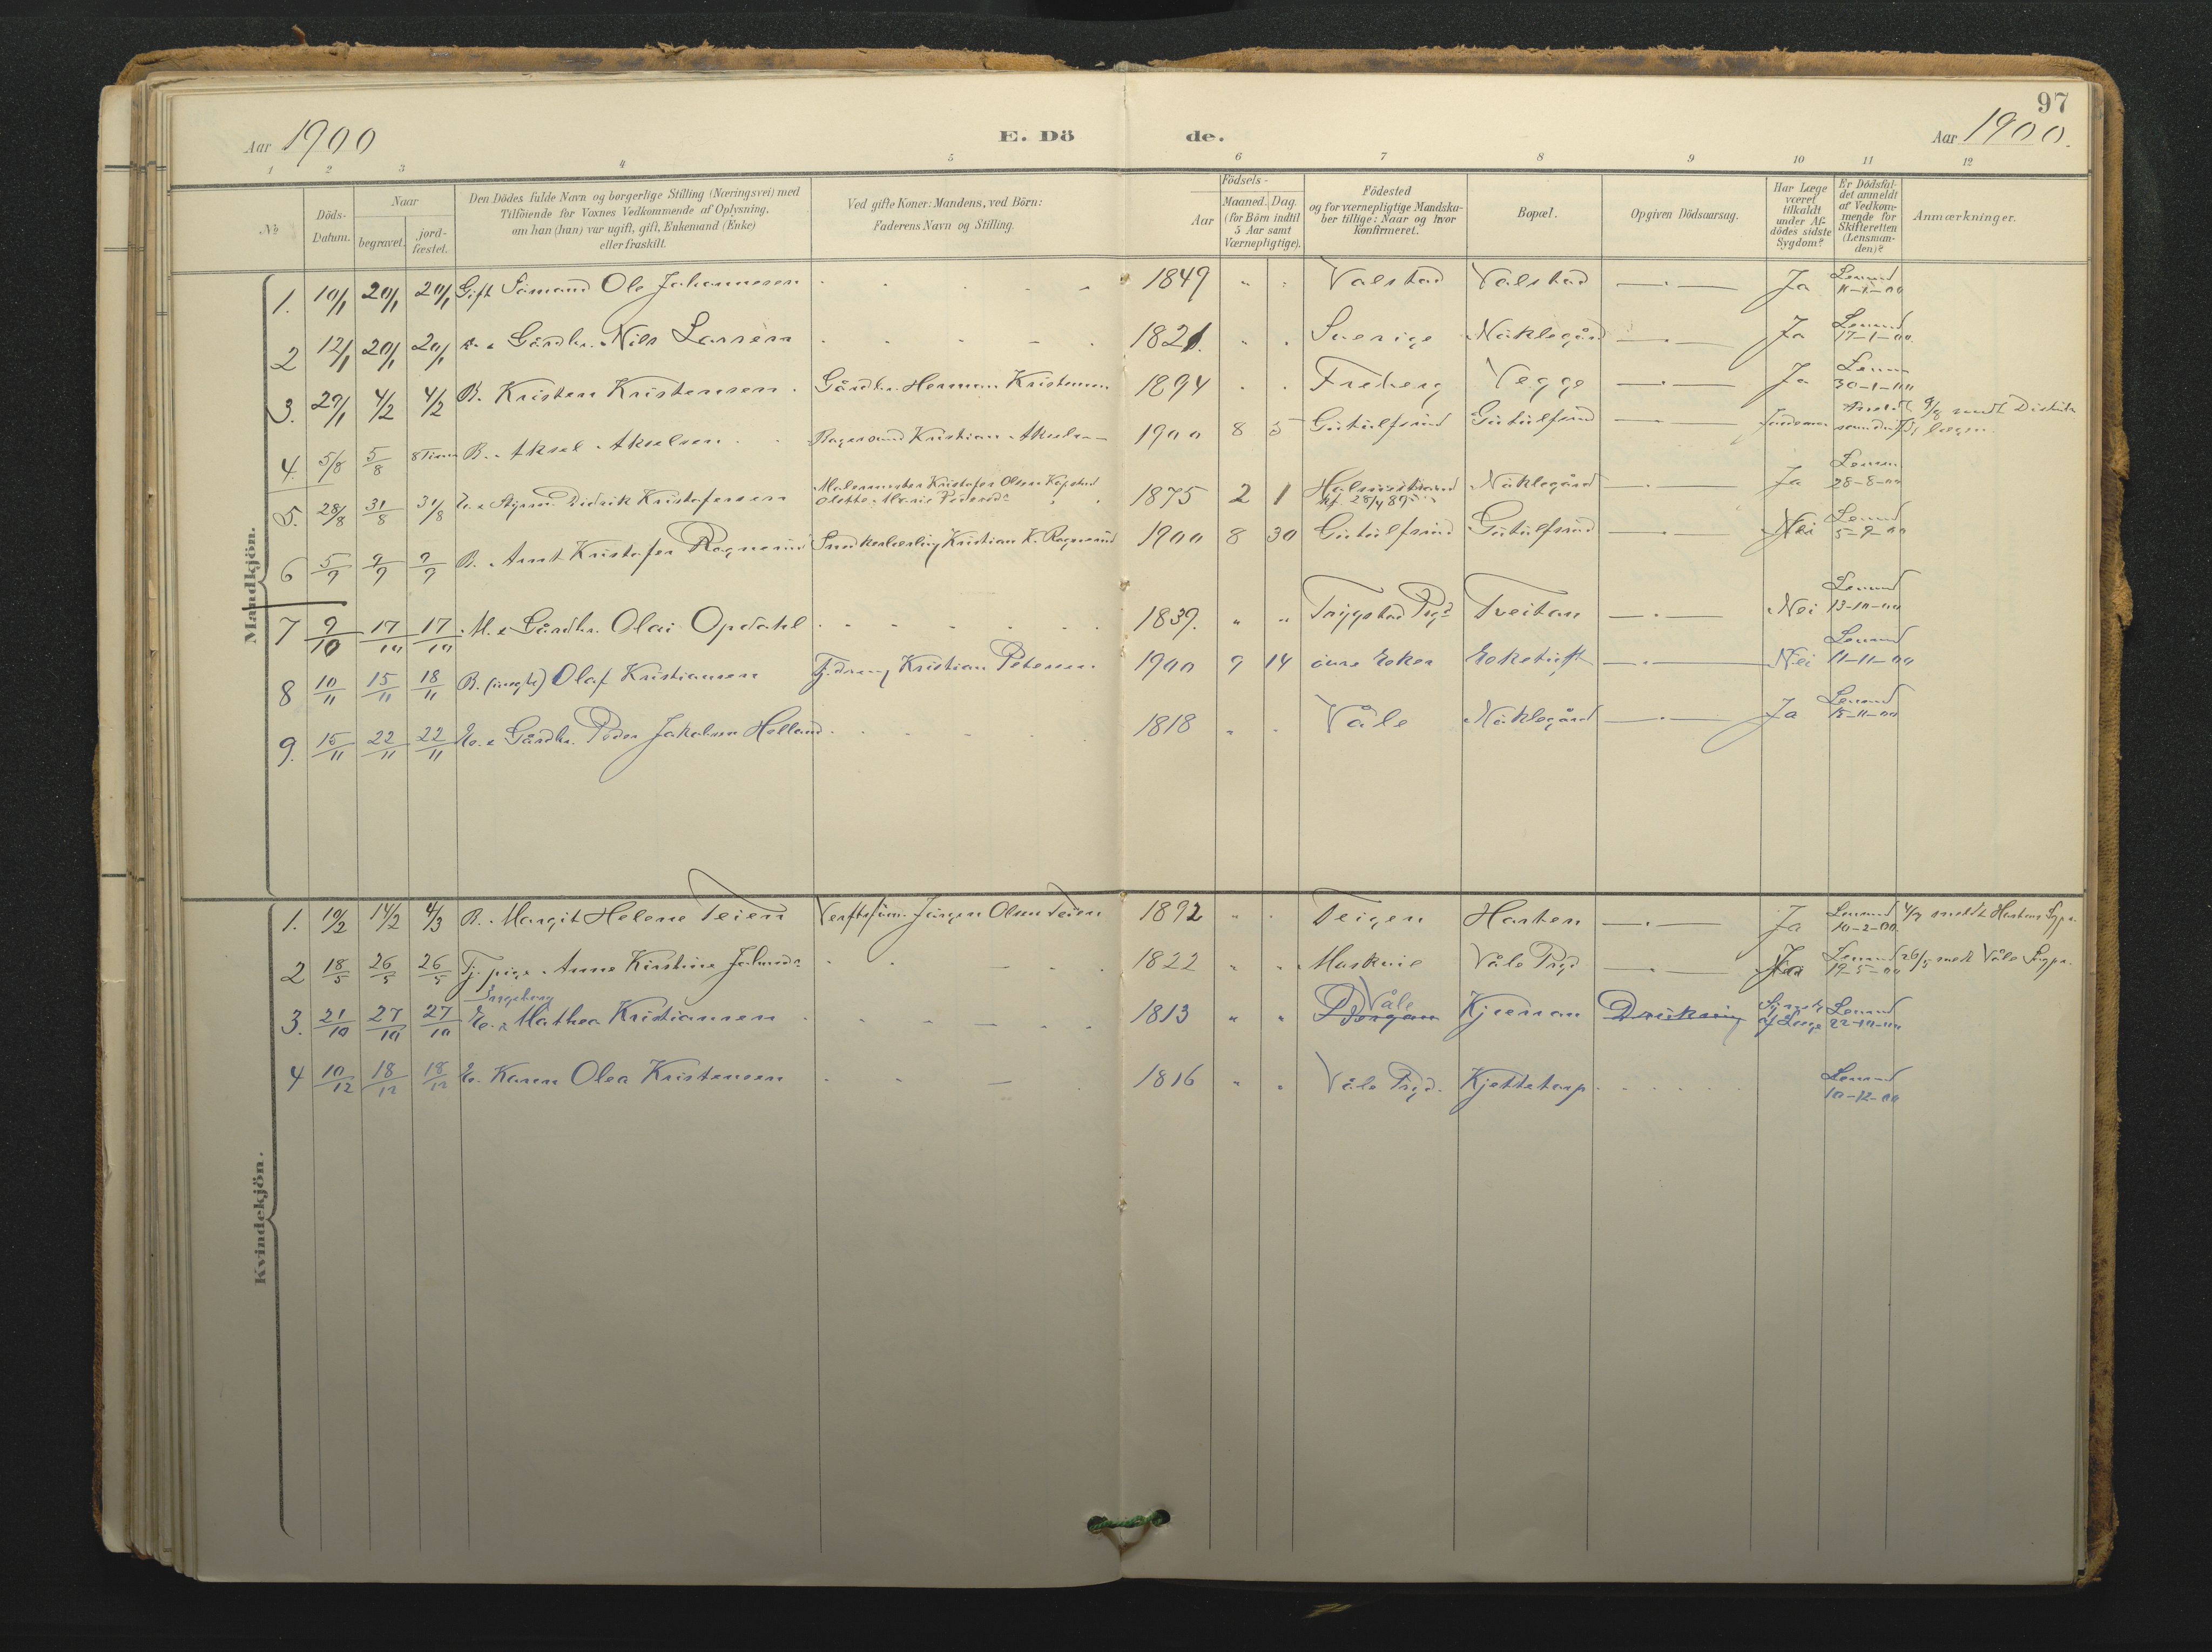 97
Aar 1900
E. Dö de.
Aar 1900.
1 2 3 4 5 6 7 8 9 10 11 12
№
Döds-Datum.
Naar
begravet.
jord-fæstet.
Den Dödes fulde Navn og borgerlige Stilling (Næringsvei) med
Tilföiende for Voxnes Vedkommende af Oplysning,
om han (hun) var ugift, gift, Enkemand (Enke)
eller fraskilt.
Ved gifte Koner: Mandens, ved Börn:
Faderens Navn og Stilling.
Födsels-
Aar
Maaned. Dag.
(for Börn indtil
5 Aar samt
Værnepligtige).
Födested
og for værnepligtige Mandska-
ber tillige: Naar og hvor
konfirmeret.
Bopæl.
Opgiven Dödsaarsag.
Har Læge
været
tilkaldt
under Af-
dödes sidste
Sygdom?
Er Dödsfal-
det anmeldt
af Vedkom-
mende for
Skifteretten
(Lensman-
den)?
Anmærkninger.
Mandkjön.
1. 10/1 20/1 20/1 Gift Sömand Ole Johannesen 1849 " Valstad Valstad — Ja Lensmd 11-1-00
2 12/1 20/1 20/1 Gårdbr. Nils Larsen 1821. " Sverige Näklegård — Ja Lensmd 17-1-00
3. 27/1 4/2 4/2 B. Kristen Kristensen. Gårdbr. Herman Kristensen 1894 Freberg Vegge — Ja Lensm 30-1-00
4. 5/8 5/8 B. Aksel Akselsen Kristian Akselsen 1900 8 5 Gutulfsrud Gutulfsrud — 9/8 medt Distrikts lægen
5. 28/8 31/8 31/8 E. Styrm. Didrik Kristofersen Malermester Kristofer Olsen Kopstad
Olette Marie Pedersdr 1875 2 1 Holmestrand Näklegård — Ja Lensm 28-8-00
6 5/9 9/9 9/9 B. Arnt Kristofer Ragnerud Snedkerlærling Kristian K. Ragnerud 1900 8 30 Gutulfsrud Gutulfsrud — Nei Lensmd 5-9-00
7 9/10 17/10 17/10 M. Gårdbr. Olai Opdahl 1839. " " Trygstad Prgd Tveitan — Nei Lensmd 13-10-00
8 10/11 15/11 18/11 B. (uægte) Olaf Kristiansen Tj.dreng Kristian Petersen 1900 9 14 övre Eoker Eoketuft — Nei Lensmd 11-11-00
9. 15/11 22/11 22/11 E. Gårdbr. Peder Jakobsen Helland 1818 " Våle Näklegård — Ja Lensmd 15-11-00
Kvindekjön.
1. 10/2 14/2 4/3 B. Margit Helene Teien Jörgen Olsen Teien 1892 " Teigen Horten — Ja Lensmd 10-2-00 4/3 meldt Hortens Sgpr.
2 18/5 26/5 26/5 Tj. pige Anne Kirstine 1822 " Våle Prgd — Ja Lensmd 19-5-00 26/5 medt Våle Sogpr.
Ingeborg
3. 21/10 27/10 27/10 E. Mathea Kristiansen 1813 " " Våle Kjærran Lensmd 22-10-00
4 10/12 18/12 18/12 E. Karen Olea Kristensen 1816 " " Våle Prgd. Kjettetorp Lensmd 10-12-00